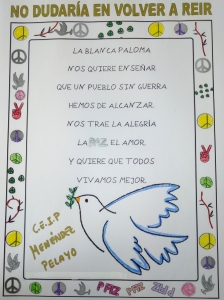 NO DUDARÍA EN VOLVER A REIR
LA BLANCA PALOMA
NOS QUIERE ENSEÑAR
QUE UN PUEBLO SIN GUERRA
HEMOS DE ALCANZAR.
NOS TRAE LA ALEGRÍA
LA PAZ, EL AMOR
Y QUIERE QUE TODOS
VIVAMOS MEJOR.
C.E.I.P
MENENDEZ
PELAYO
PAZ
PAZ